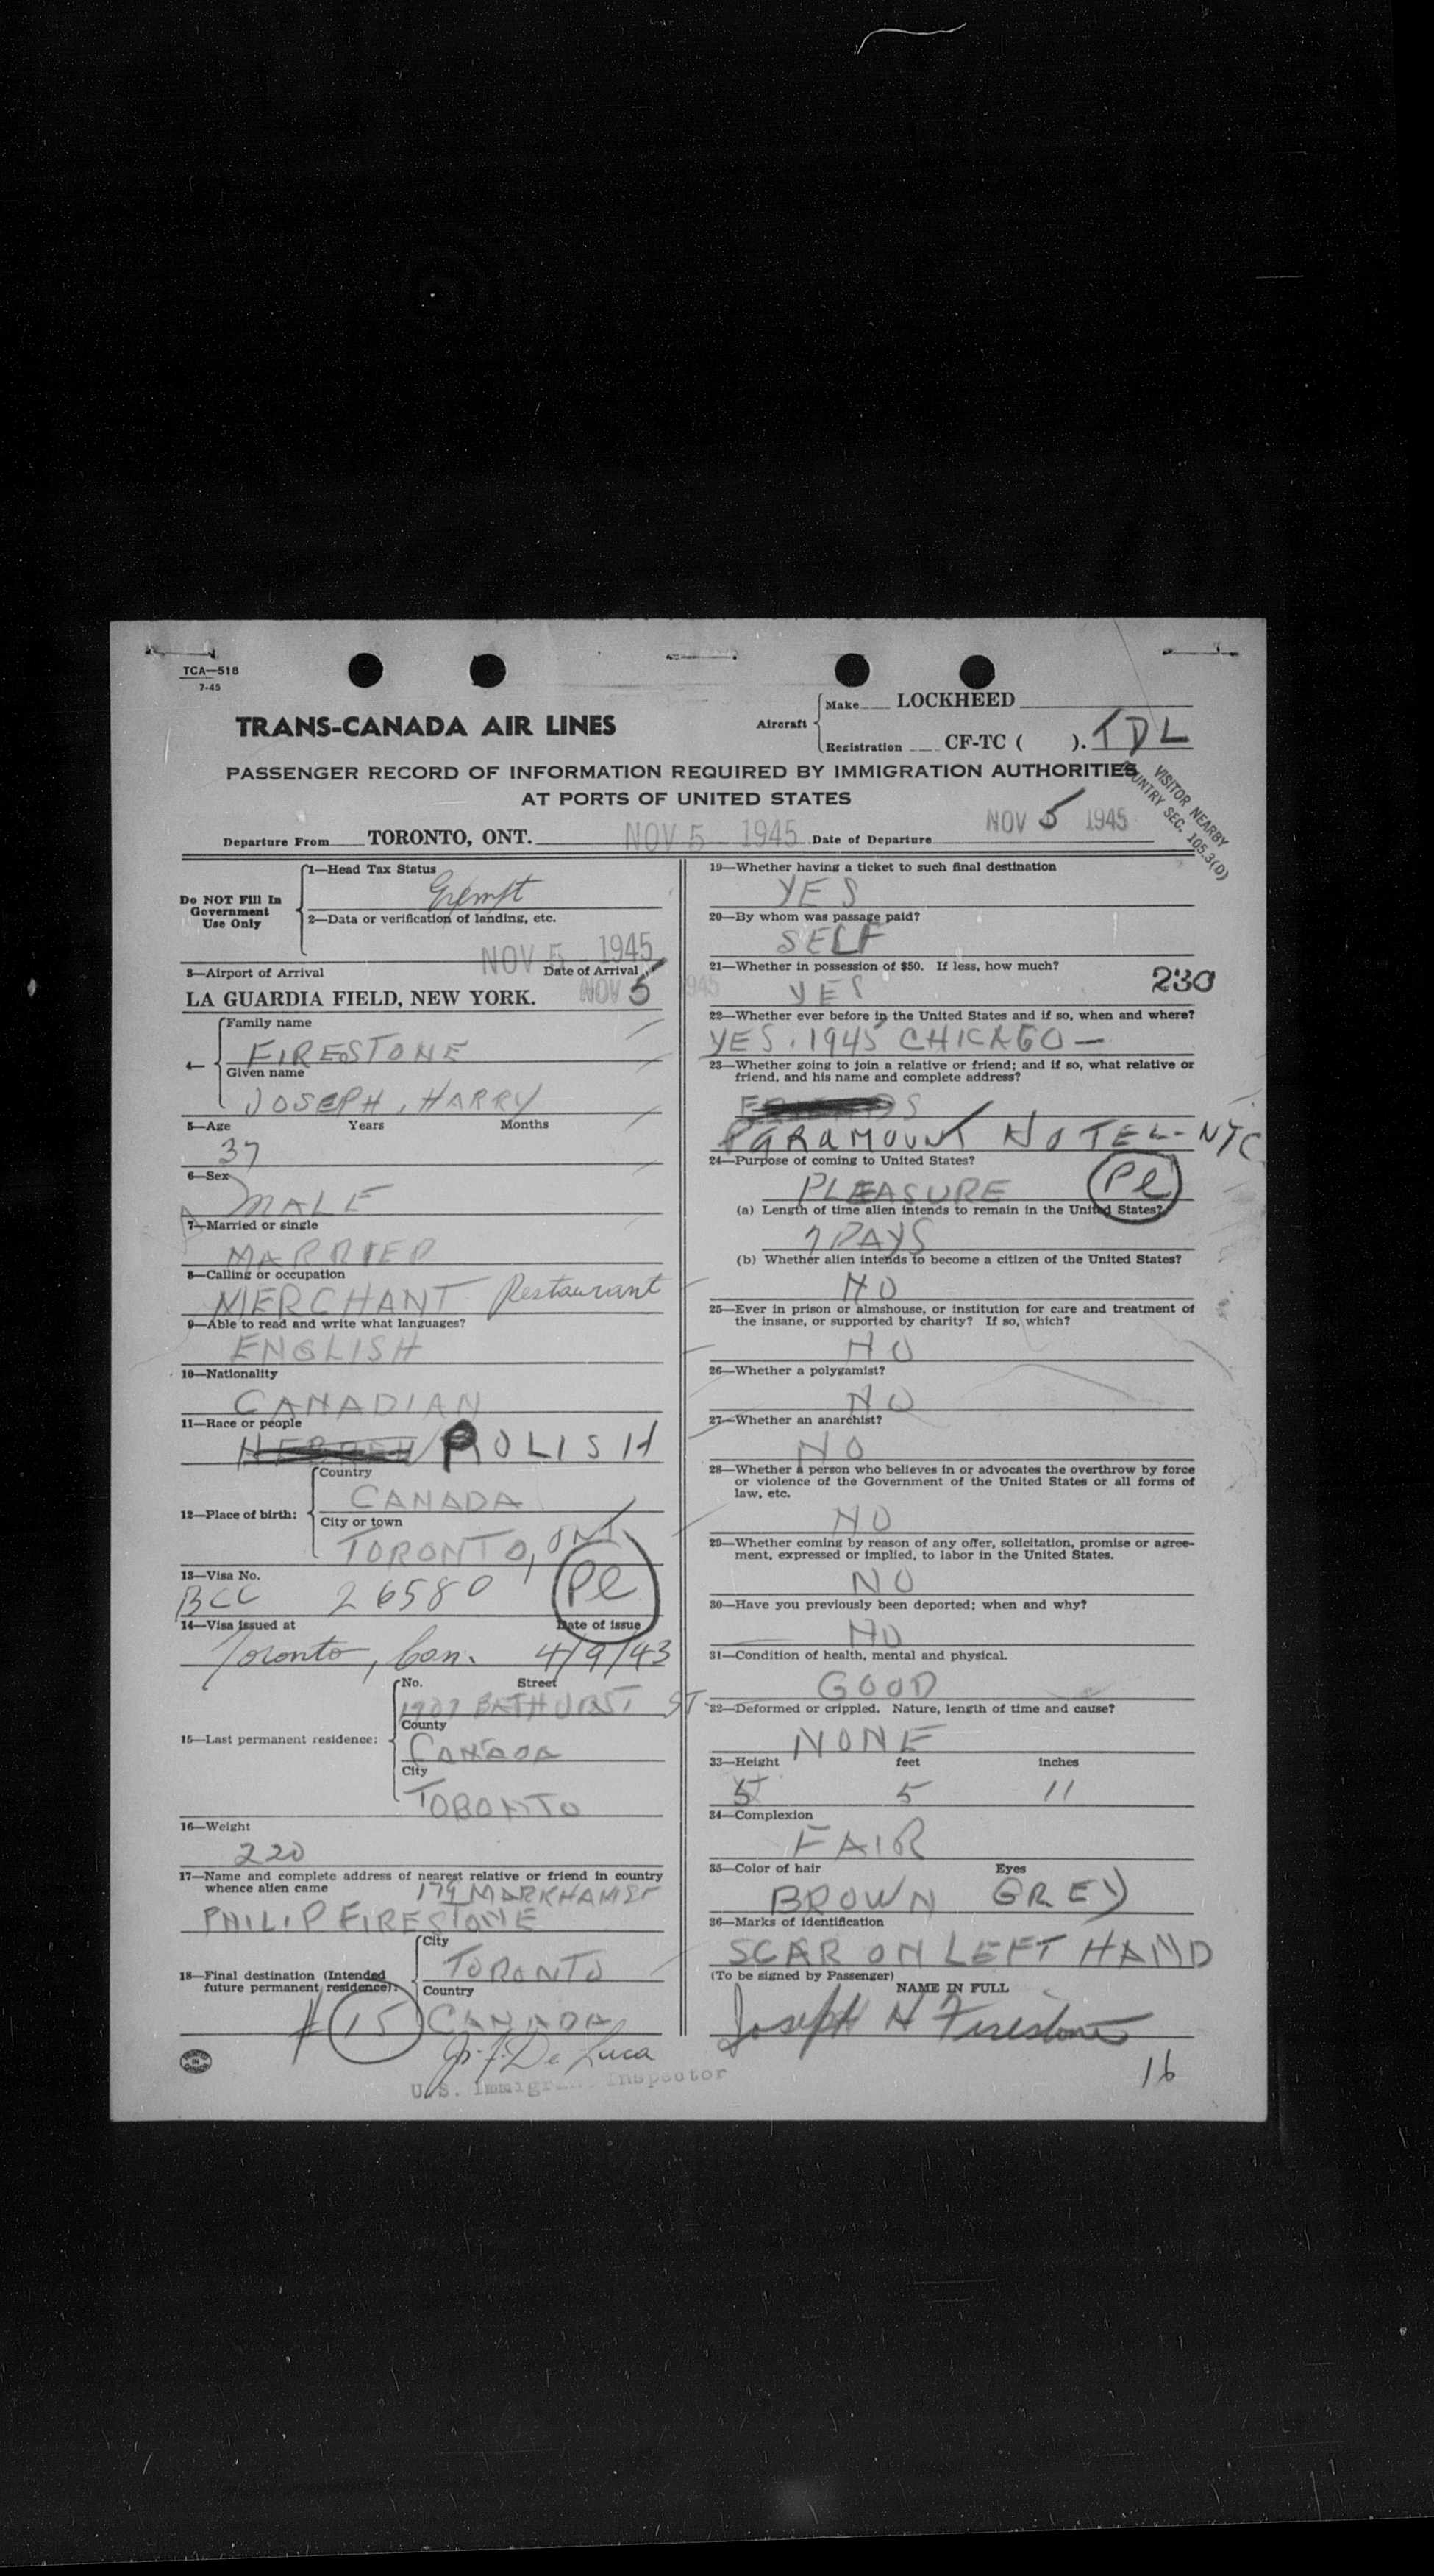 TCA—518
7-45
TRANS-CANADA AIR LINES
Aircraft
Make LOCKHEED
Registration CF-TC ( ). TDL
PASSENGER RECORD OF INFORMATION REQUIRED BY IMMIGRATION AUTHORITIES
AT PORTS OF UNITED STATES
VISITOR NEARBY
COUNTRY SEC. 105.3(D)
Departure From TORONTO, ONT. NOV 5 1945 Date of Departure NOV 5 1945
Do NOT Fill In
Government
Use Only
1—Head Tax Status
Exempt
2—Data or verification of landing, etc.
NOV 5 1945
3—Airport of Arrival Date of Arrival
LA GUARDIA FIELD, NEW YORK. NOV 5 1945
4—
Family name
FIRESTONE
Given name
JOSEPH, HARRY
5—Age Years Months
37
6—Sex
MALE
7—Married or single
MARRIED
8—Calling or occupation
MERCHANT Restaurant
9—Able to read and write what languages?
ENGLISH
10—Nationality
CANADIAN
11—Race or people
HEBREW POLISH
12—Place of birth:
Country
CANADA
City or town
TORONTO, ONT.
13—Visa No.
BCC 26580 Pl
14—Visa issued at Date of issue
Toronto, Can. 4/9/43
15—Last permanent residence:
No. Street
BATHURST ST
County
CANADA
City
TORONTO
16—Weight
220
17—Name and complete address of nearest relative or friend in country
whence alien came 179 MARKHAM ST
PHILIP FIRESTONE
18—Final destination (Intended
future permanent residence):
City
TORONTO
Country
CANADA
# 15
De Luca
U.S. Immigrant Inspector
19—Whether having a ticket to such final destination
YES
20—By whom was passage paid?
SELF
21—Whether in possession of $50. If less, how much?
YES 230
22—Whether ever before in the United States and if so, when and where?
YES. 1945 CHICAGO —
23—Whether going to join a relative or friend; and if so, what relative or
friend, and his name and complete address?
PARAMOUNT HOTEL - NYC
24—Purpose of coming to United States?
PLEASURE Pl
(a) Length of time alien intends to remain in the United States?
7 DAYS
(b) Whether alien intends to become a citizen of the United States?
NO
25—Ever in prison or almshouse, or institution for care and treatment of
the insane, or supported by charity? If so, which?
NO
26—Whether a polygamist?
NO
27—Whether an anarchist?
NO
28—Whether a person who believes in or advocates the overthrow by force
or violence of the Government of the United States or all forms of
law, etc.
NO
29—Whether coming by reason of any offer, solicitation, promise or agree-
ment, expressed or implied, to labor in the United States.
NO
30—Have you previously been deported; when and why?
NO
31—Condition of health, mental and physical.
GOOD
32—Deformed or crippled. Nature, length of time and cause?
NONE
33—Height feet inches
5 5 11
34—Complexion
FAIR
35—Color of hair Eyes
BROWN GREY
36—Marks of identification
SCAR ON LEFT HAND
(To be signed by Passenger)
NAME IN FULL
Joseph H Firestone
16